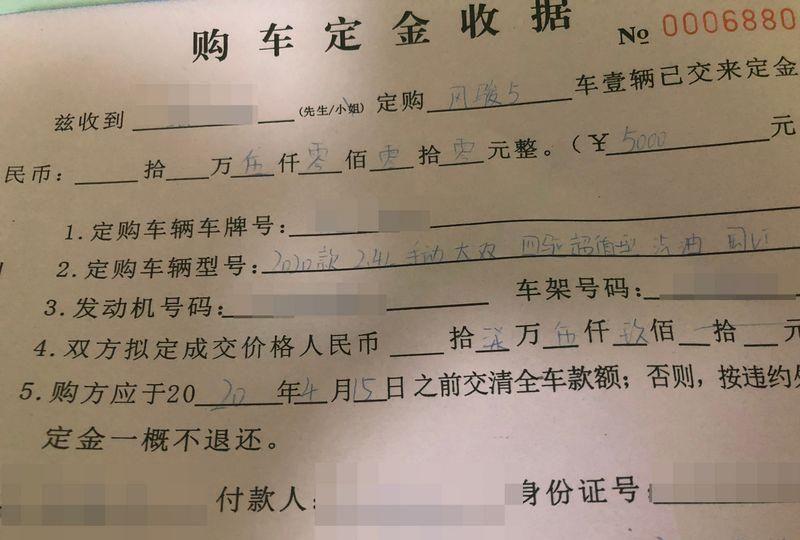 购车定金收据 № 0006880
兹收到 (先生/小姐) 定购 风骏5 车壹辆已交来定金
民币： 拾 万 伍 仟 零 佰 零 拾 零 元整。（¥ 5000 元
1.定购车辆车牌号：
2.定购车辆型号：2020款 2.4L 手动 大双 四驱 超值型 汽油 国Ⅵ
3.发动机号码： 车架号码：
4.双方拟定成交价格人民币 拾 柒 万 伍 仟 玖 佰 拾 元
5.购方应于20 20 年 4 月 15 日之前交清全车款额；否则，按违约
定金一概不退还。
付款人： 身份证号：